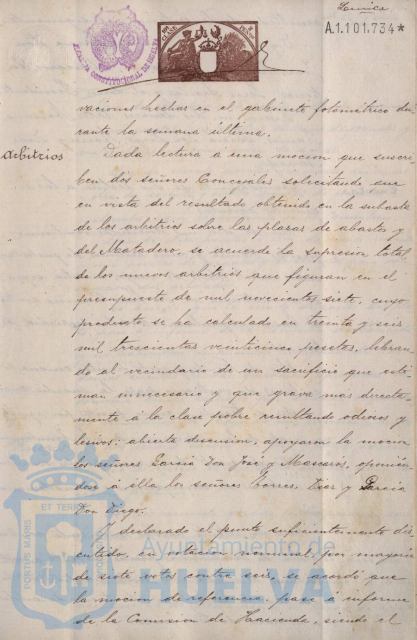 Única
A.1.101.734*
ALCALDIA CONSTITUCIONAL DE HUELVA
vaciones hechas en el gabinete fotométrico du
rante la semana última.
Arbitrios
Dada lectura á una mocion que suscri
ben dos señores Concejales solicitando que
en vista del resultado obtenido en la subasta
de los arbitrios sobre las plazas de abastos y
del Matadero, se acuerde la supresion total
de los nuevos arbitrios que figuran en el
presupuesto de mil novecientos siete, cuyo
producto se ha calculado en treinta y seis
mil trescientas veinticinco pesetas, libran
do al vecindario de un sacrificio que esti
man innecesario y que grava mas directa
mente á la clase pobre resultando odiosos y
lesivos: abierta discusion, apoyaron la mocion
los señores García Don José y Mascarós, oponién
dose á ella los señores Torres, Díaz y García
Don Diego.
Y declarado el punto suficientemente dis
cutido, en votacion nominal, por mayoria
de siete votos contra seis, se acordó que
la mocion de referencia, pase á informe
de la Comision de Hacienda, siendo el
PORTUS MARIS ET TERRE
Ayuntamiento de
HUELVA